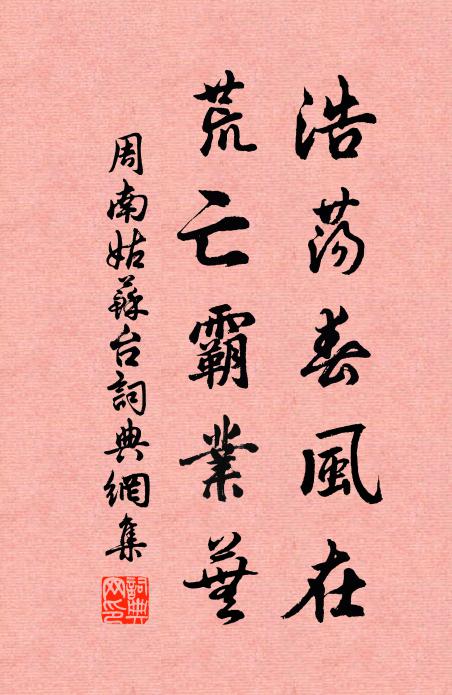 浩荡春風在
荒亡霸業蕪
周南姑蘇台詞典網集
詞典
网印